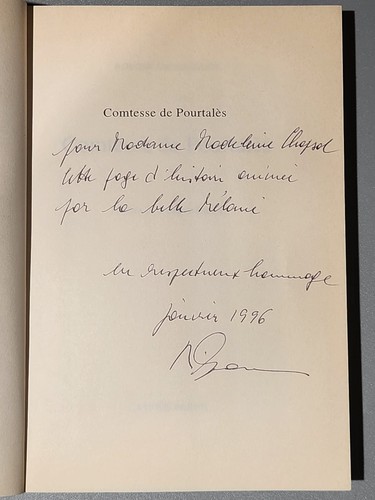 Comtesse de Pourtalès
pour Madame Madeleine Chapsal
cette page d'histoire animée
par la belle Mélanie
en respectueux hommage
janvier 1996